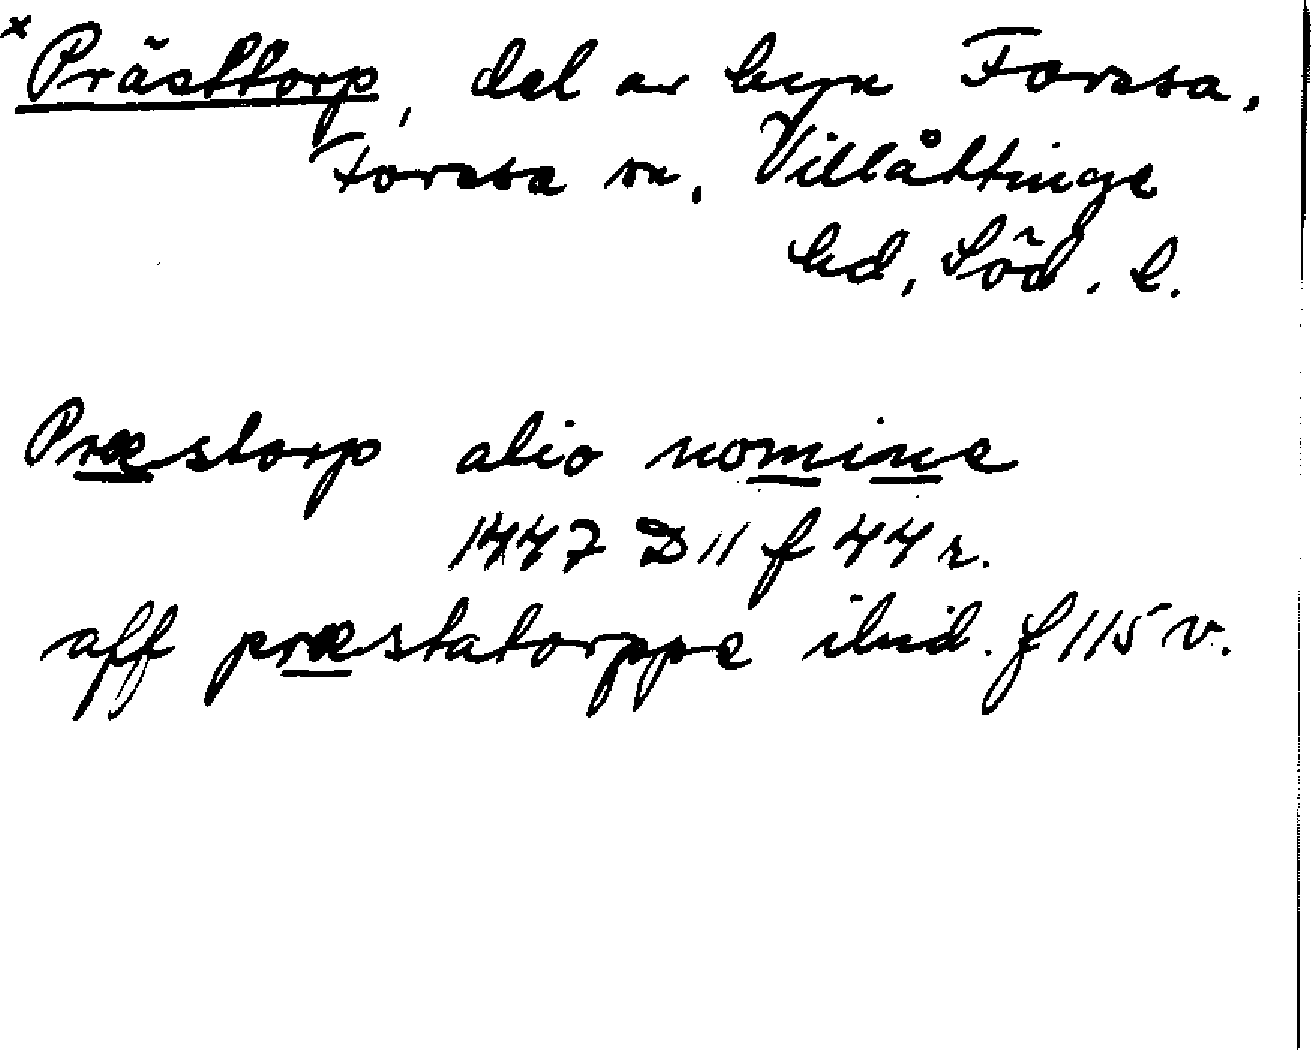 × Prästtorp, del av byn Forssa,
Forssa sn, Villåttinge
hd, Söd. l.
Præstorp alio nomine
1447 D 11 f 44 r.
aff præstatorppe ibid. f 115 v.